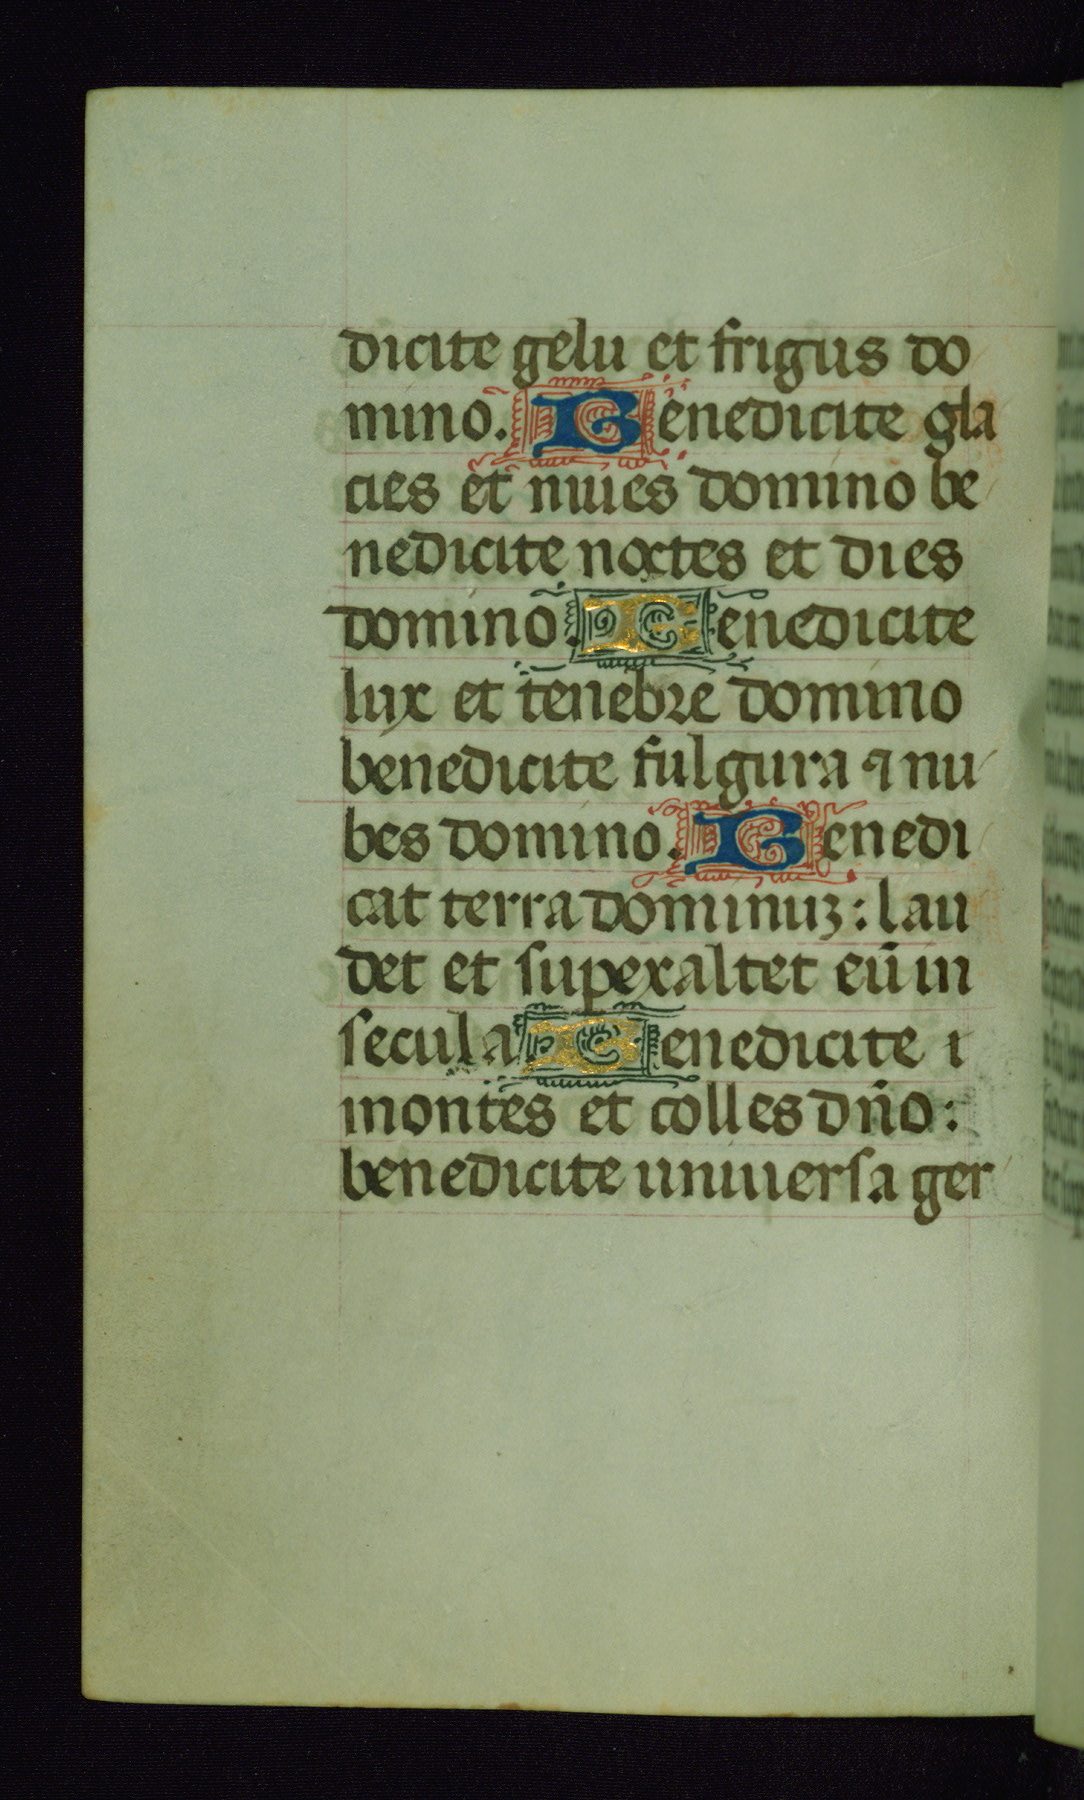 dicite gelu et frigus do
mino. Benedicite gla
cies et niues domino be
nedicite noctes et dies
domino. Benedicite
lux et tenebre domino
benedicite fulgura ⁊ nu
bes domino. Benedi
cat terra dominuꝫ: lau
det et superexaltet eū in
secula Benedicite ı
montes et colles dn̄o:
benedicite uniuersa ger